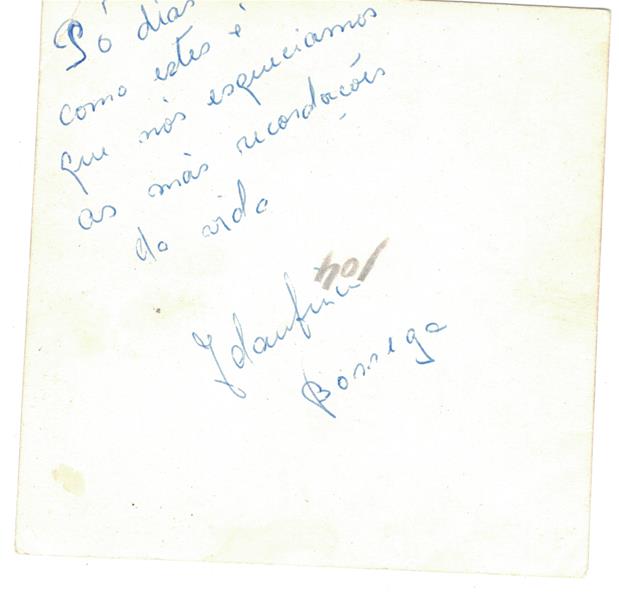 Só dias
como estes é
que nós esqueciamos
as más recordações
da vida
104
Bossega